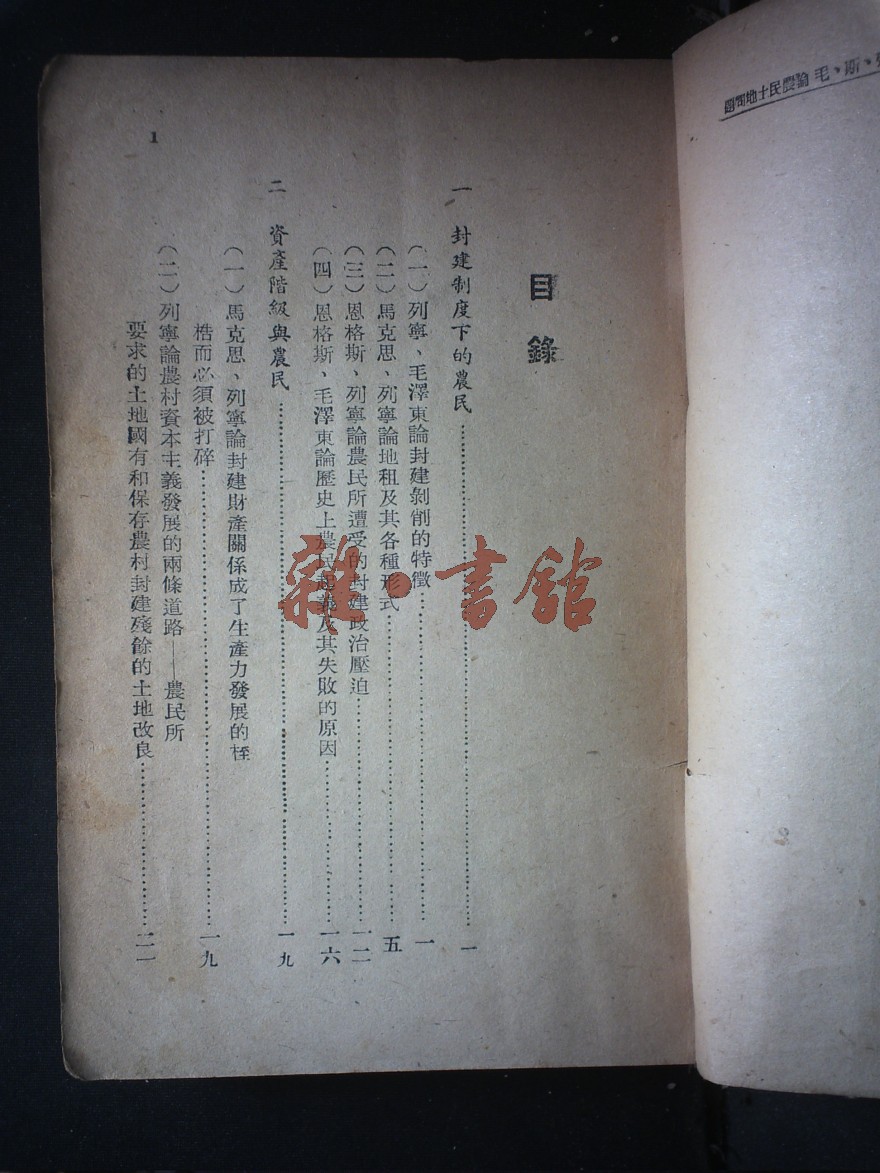 目錄
一 封建制度下的農民……………一
(一)列寧、毛澤東論封建剝削的特徵……………一
(二)馬克思、列寧論地租及其各種形式……………五
(三)恩格斯、列寧論農民所遭受的封建政治壓迫……………一二
(四)恩格斯、毛澤東論歷史上農民起義及其失敗的原因……………一六
二 資產階級與農民……………一九
(一)馬克思、列寧論封建財產關係成了生產力發展的桎
梏而必須被打碎……………一九
(二)列寧論農村資本主義發展的兩條道路——農民所
要求的土地國有和保存農村封建殘餘的土地改良……………二一
1
斯、毛論農民土地問題
雜·書館